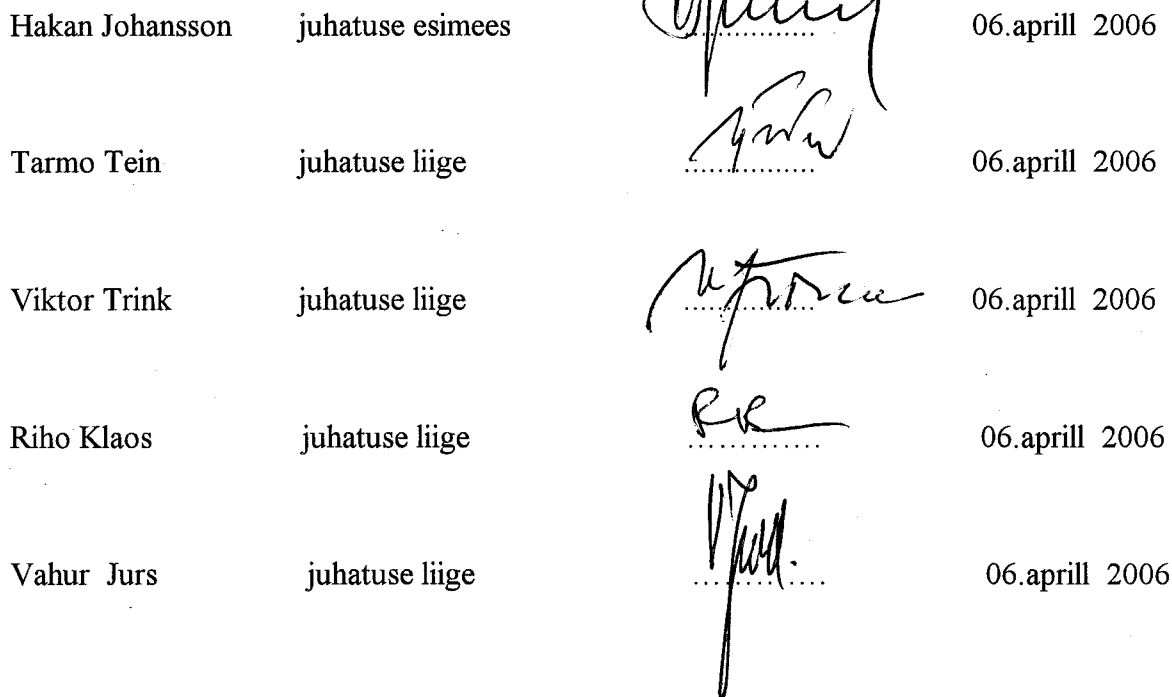 Hakan Johansson juhatuse esimees ............. 06.aprill 2006
Tarmo Tein juhatuse liige ................ 06.aprill 2006
Viktor Trink juhatuse liige ................ 06.aprill 2006
Riho Klaos juhatuse liige ............. 06.aprill 2006
Vahur Jurs juhatuse liige ............. 06.aprill 2006